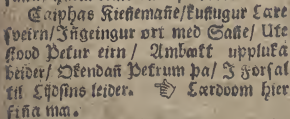 Caiphas Kieñemañe/kuñugur Lære
sveirn/Iñgeingur ort med Sañe/ Ute
stood Petur eirn/ Ambøtt uppluka
beider/ Økendañ Petrum þa/ I forsal
til Lijdsins leider. ☞ Lærdoom hier
fiña ma.